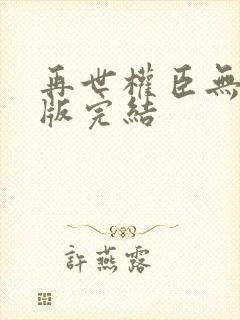 再世權臣無
版完結
許燕露